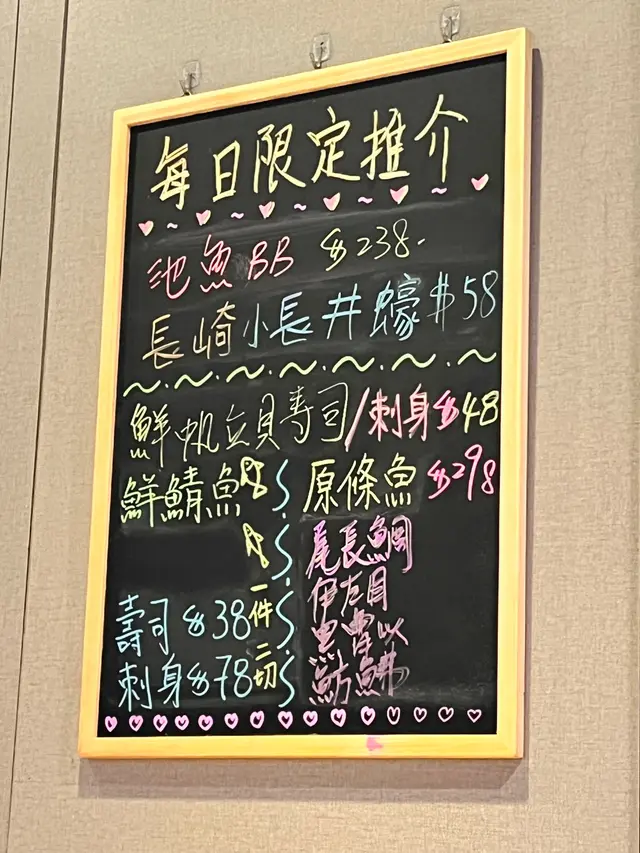 每日限定推介
池魚BB $238-
長崎小長井蠔$58
鮮帆立貝壽司/刺身$48
鮮鯖魚
壽司$38一件
刺身$78二切
原條魚$298
尾長鯛
伊左目
黑曹以
魴鮄